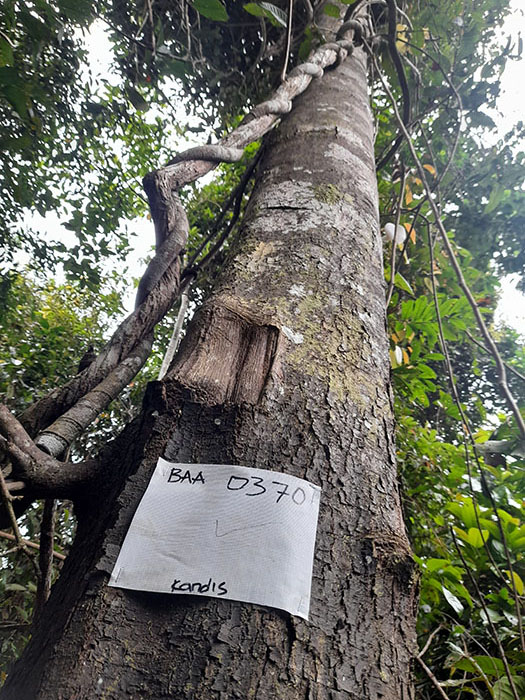 BAA 0370
Kandis